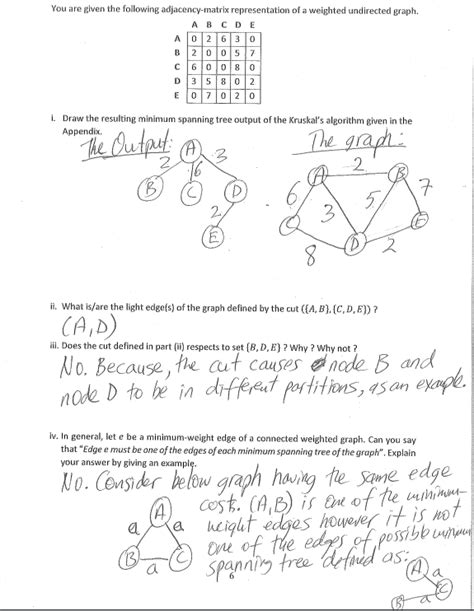 You are given the following adjacency-matrix representation of a weighted undirected graph.
A B C D E
A 0 2 6 3 0
B 2 0 0 5 7
C 6 0 0 8 0
D 3 5 8 0 2
E 0 7 0 2 0
i. Draw the resulting minimum spanning tree output of the Kruskal's algorithm given in the
Appendix.
The Output:
The graph:
A
2
6
3
B
C
D
2
E
A
2
B
6
3
5
7
C
D
E
8
2
ii. What is/are the light edge(s) of the graph defined by the cut ({A, B}, {C, D, E}) ?
(A,D)
iii. Does the cut defined in part (ii) respects to set {B, D, E} ? Why ? Why not ?
No. Because, the cut causes node B and
node D to be in different partitions, as an example.
iv. In general, let e be a minimum-weight edge of a connected weighted graph. Can you say
that "Edge e must be one of the edges of each minimum spanning tree of the graph". Explain
your answer by giving an example.
No. Consider below graph having the same edge
cost. (A,B) is one of the minimum-
weight edges however it is not
one of the edges of possible minimum
spanning tree defined as:
A
a
a
B
a
C
6
A
a
C
B
a